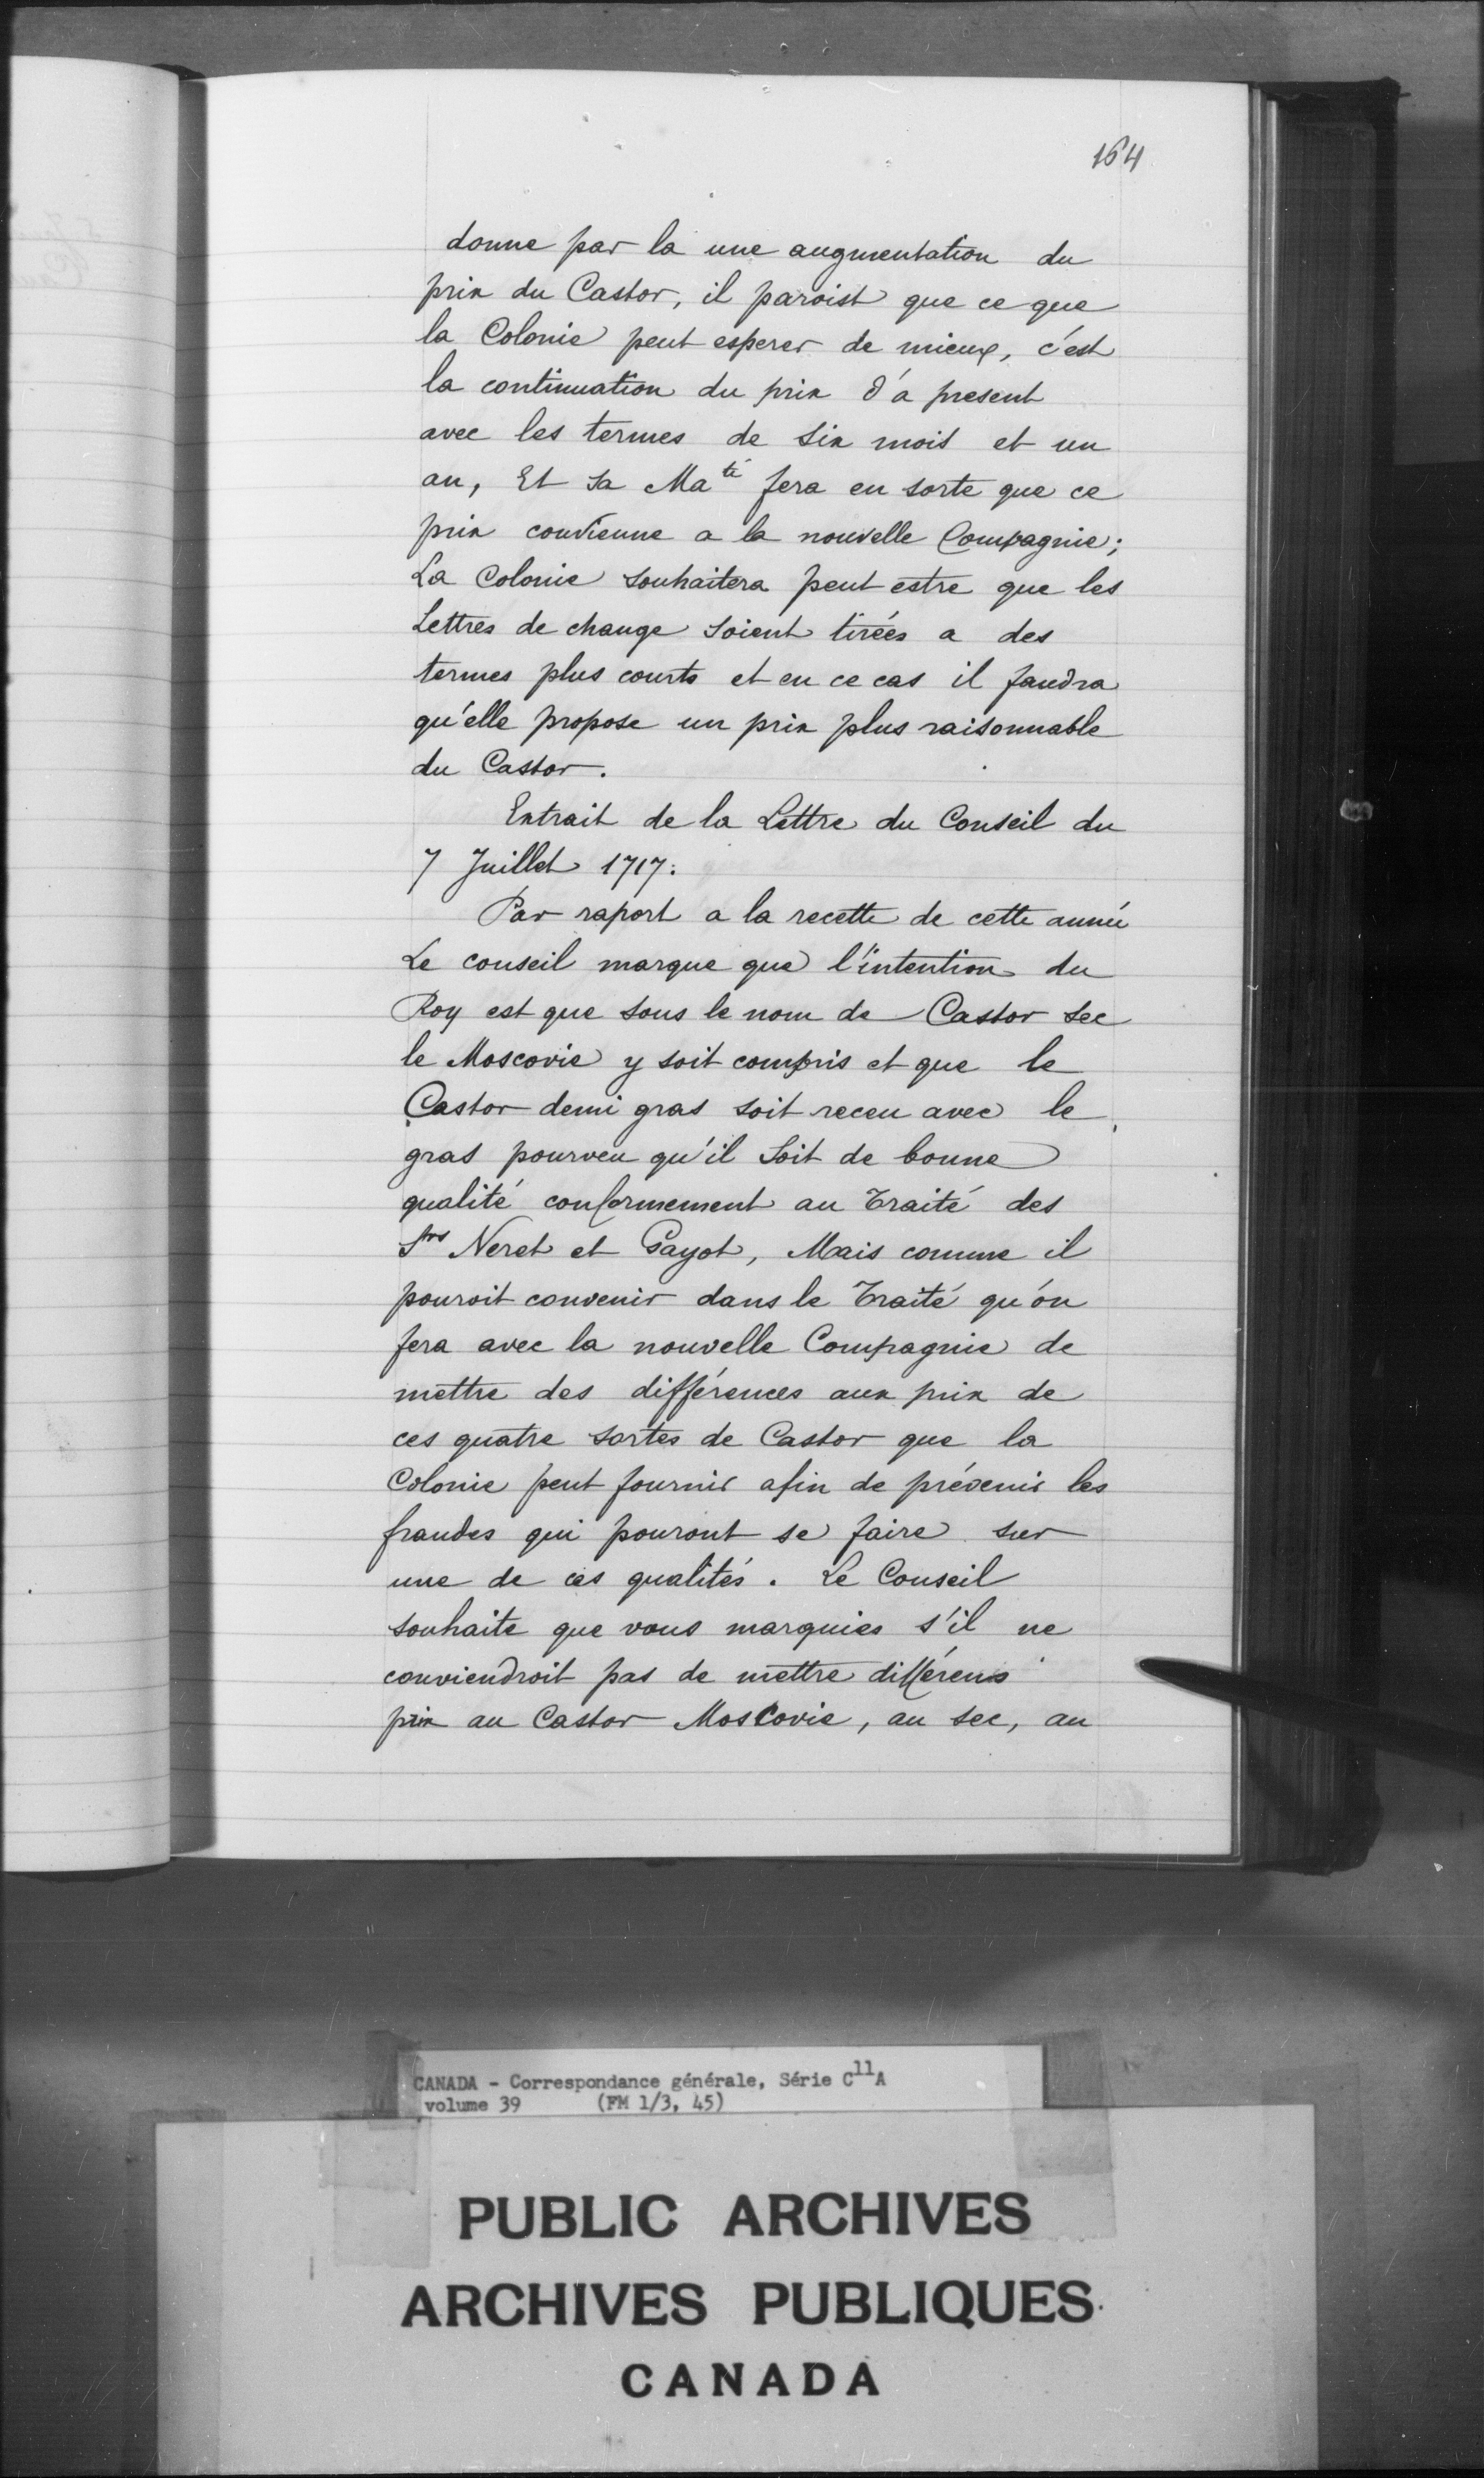 164
donne par la une augmentation du
prix du Castor, il paroist que ce que
la Colonie peut esperer de mieux, c'est
la continuation du prix d'a present
avec les termes de six mois et un
an, Et Sa Ma té fera en sorte que ce
prix convienne a la nouvelle Compagnie;
La Colonie souhaitera peut estre que les
Lettres de change soient tirées a des
termes plus courts et en ce cas il faudra
qu'elle propose un prix plus raisonnable
du Castor.
Extrait de la Lettre du Conseil du
7 Juillet 1717:
Par raport a la recette de cette année
Le conseil marque que l'intention du
Roy est que sous le nom de Castor sec
le Moscovie y soit compris et que le
Castor demi gras soit receu avec le
gras pourveu qu'il soit de bonne
qualité conformement au Traité des
Srs Neret et Gayot, Mais comme il
pouroit convenir dans le Traité qu'on
fera avec la nouvelle Compagnie de
mettre des différences aux prix de
ces quatre sortes de Castor que la
Colonie peut fournir afin de prévenir les
fraudes qui pouront se faire sur
une de ces qualités. Le Conseil
souhaite que vous marquies s'il ne
conviendroit pas de mettre différens
prix au Castor Moscovie, au sec, au
CANADA - Correspondance générale, Série C11A
volume 39 (FM 1/3, 45)
PUBLIC ARCHIVES
ARCHIVES PUBLIQUES
CANADA